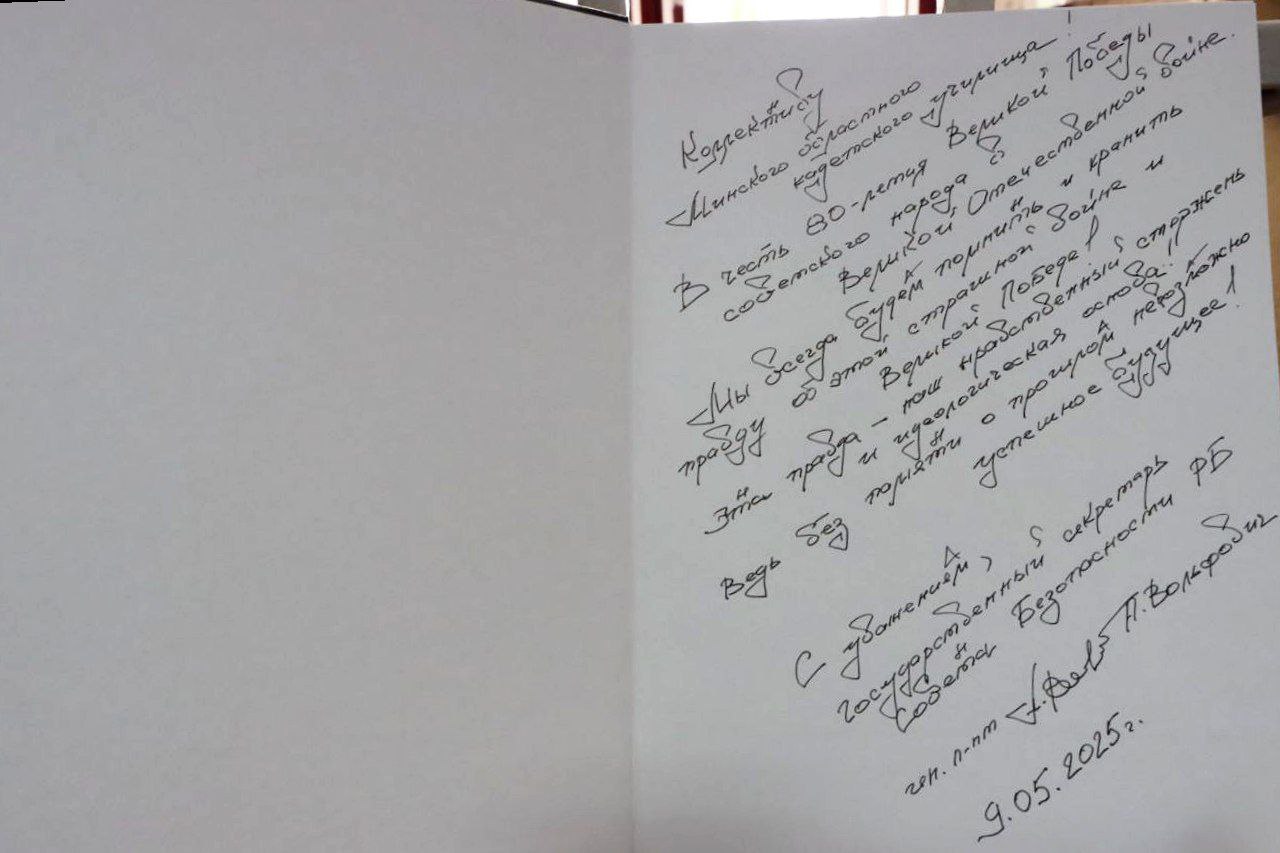 Коллективу
Минского областного
кадетского училища!
В честь 80-летия Великой Победы
советского народа в
Великой Отечественной войне.
Мы всегда будем помнить и хранить
правду об этой страшной войне и
Великой Победе!
Эта правда – наш нравственный стержень
и идеологическая основа!!
Ведь без памяти о прошлом невозможно
успешное будущее!
С уважением,
Государственный секретарь
Совета Безопасности РБ
ген. л-нт А. Вольфович
9.05.2025г.